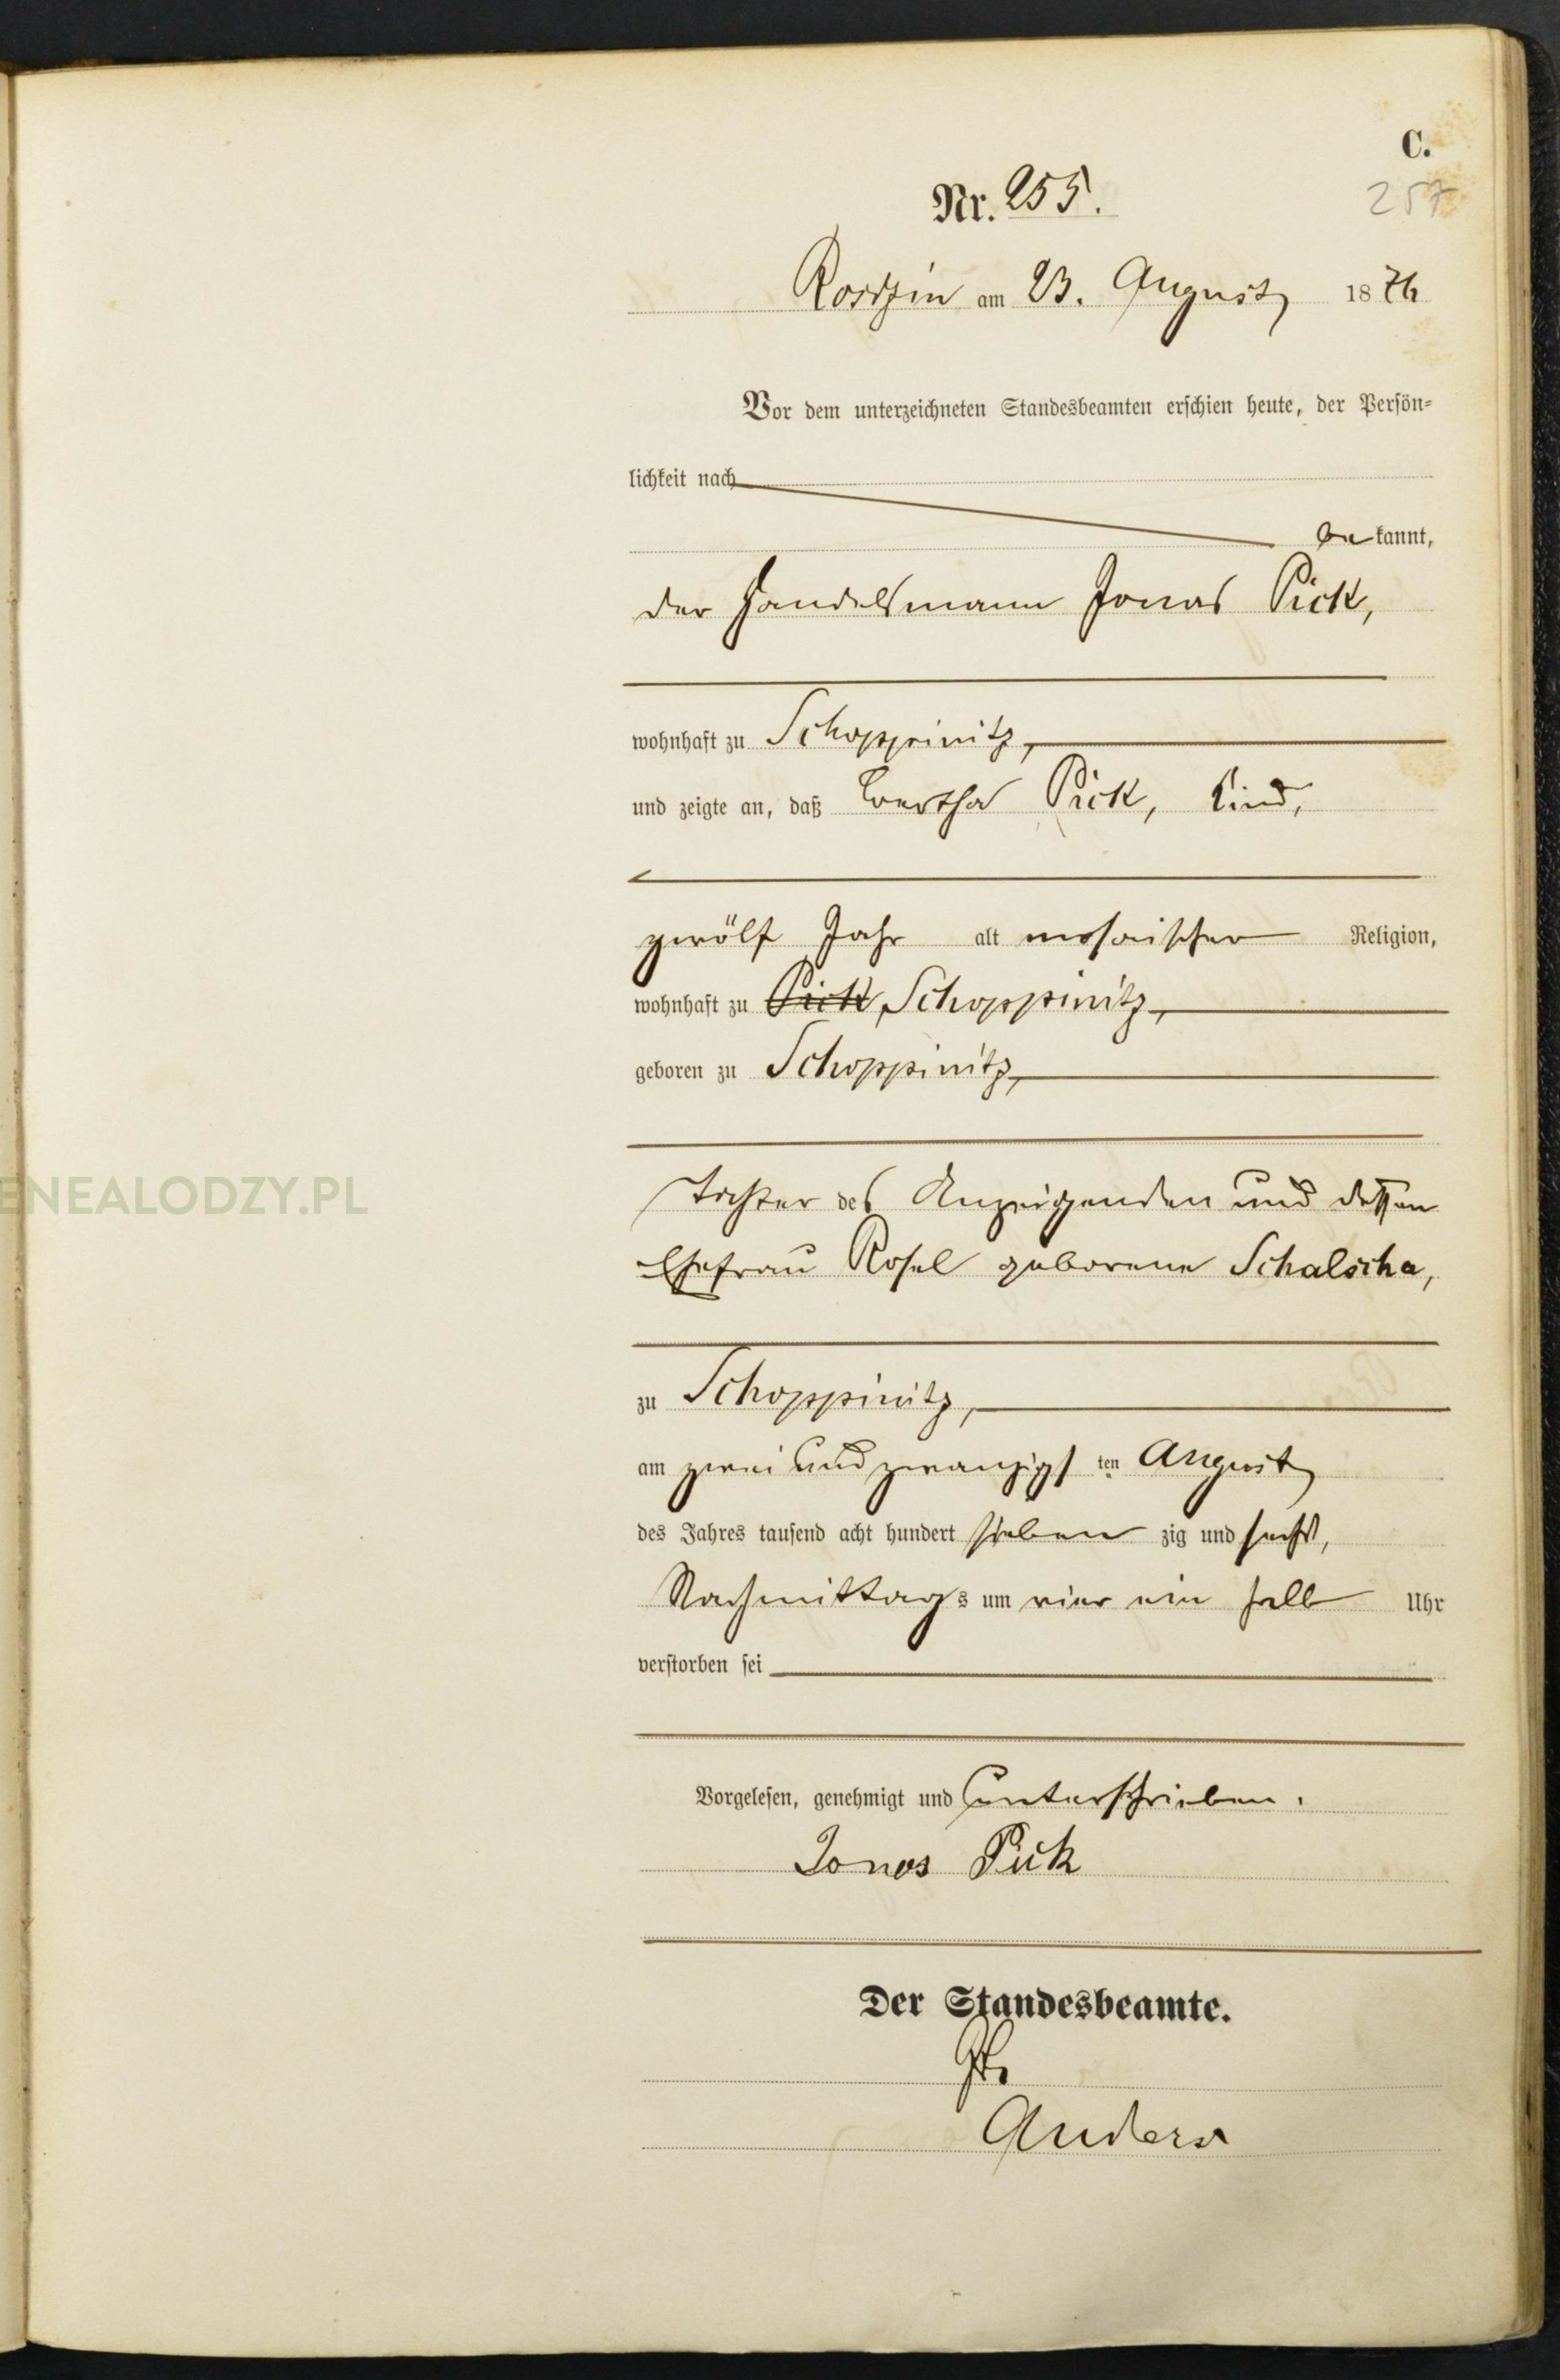 C.
Nr. 255.
257
Rosdzin am 23. August 1876
Vor dem unterzeichneten Standesbeamten erschien heute, der Persön-
lichkeit nach
bekannt,
der Handelsmann Jonas Pick,
wohnhaft zu Schoppinitz,
und zeigte an, daß Bertha Pick, Kind,
zwölf Jahr alt mosaischer Religion,
wohnhaft zu Pick, Schoppinitz,
geboren zu Schoppinitz,
Tochter des Anzeigenden und dessen
Ehefrau Rosel geborene Schalscha,
ENEALODZY.PL
zu Schoppinitz,
am zwei und zwanzigsten August
des Jahres tausend acht hundert siebenzig und sechs,
Nachmittags um vier ein halb Uhr
verstorben sei
Vorgelesen, genehmigt und unterschrieben.
Jonas Pick
Der Standesbeamte.
Anders